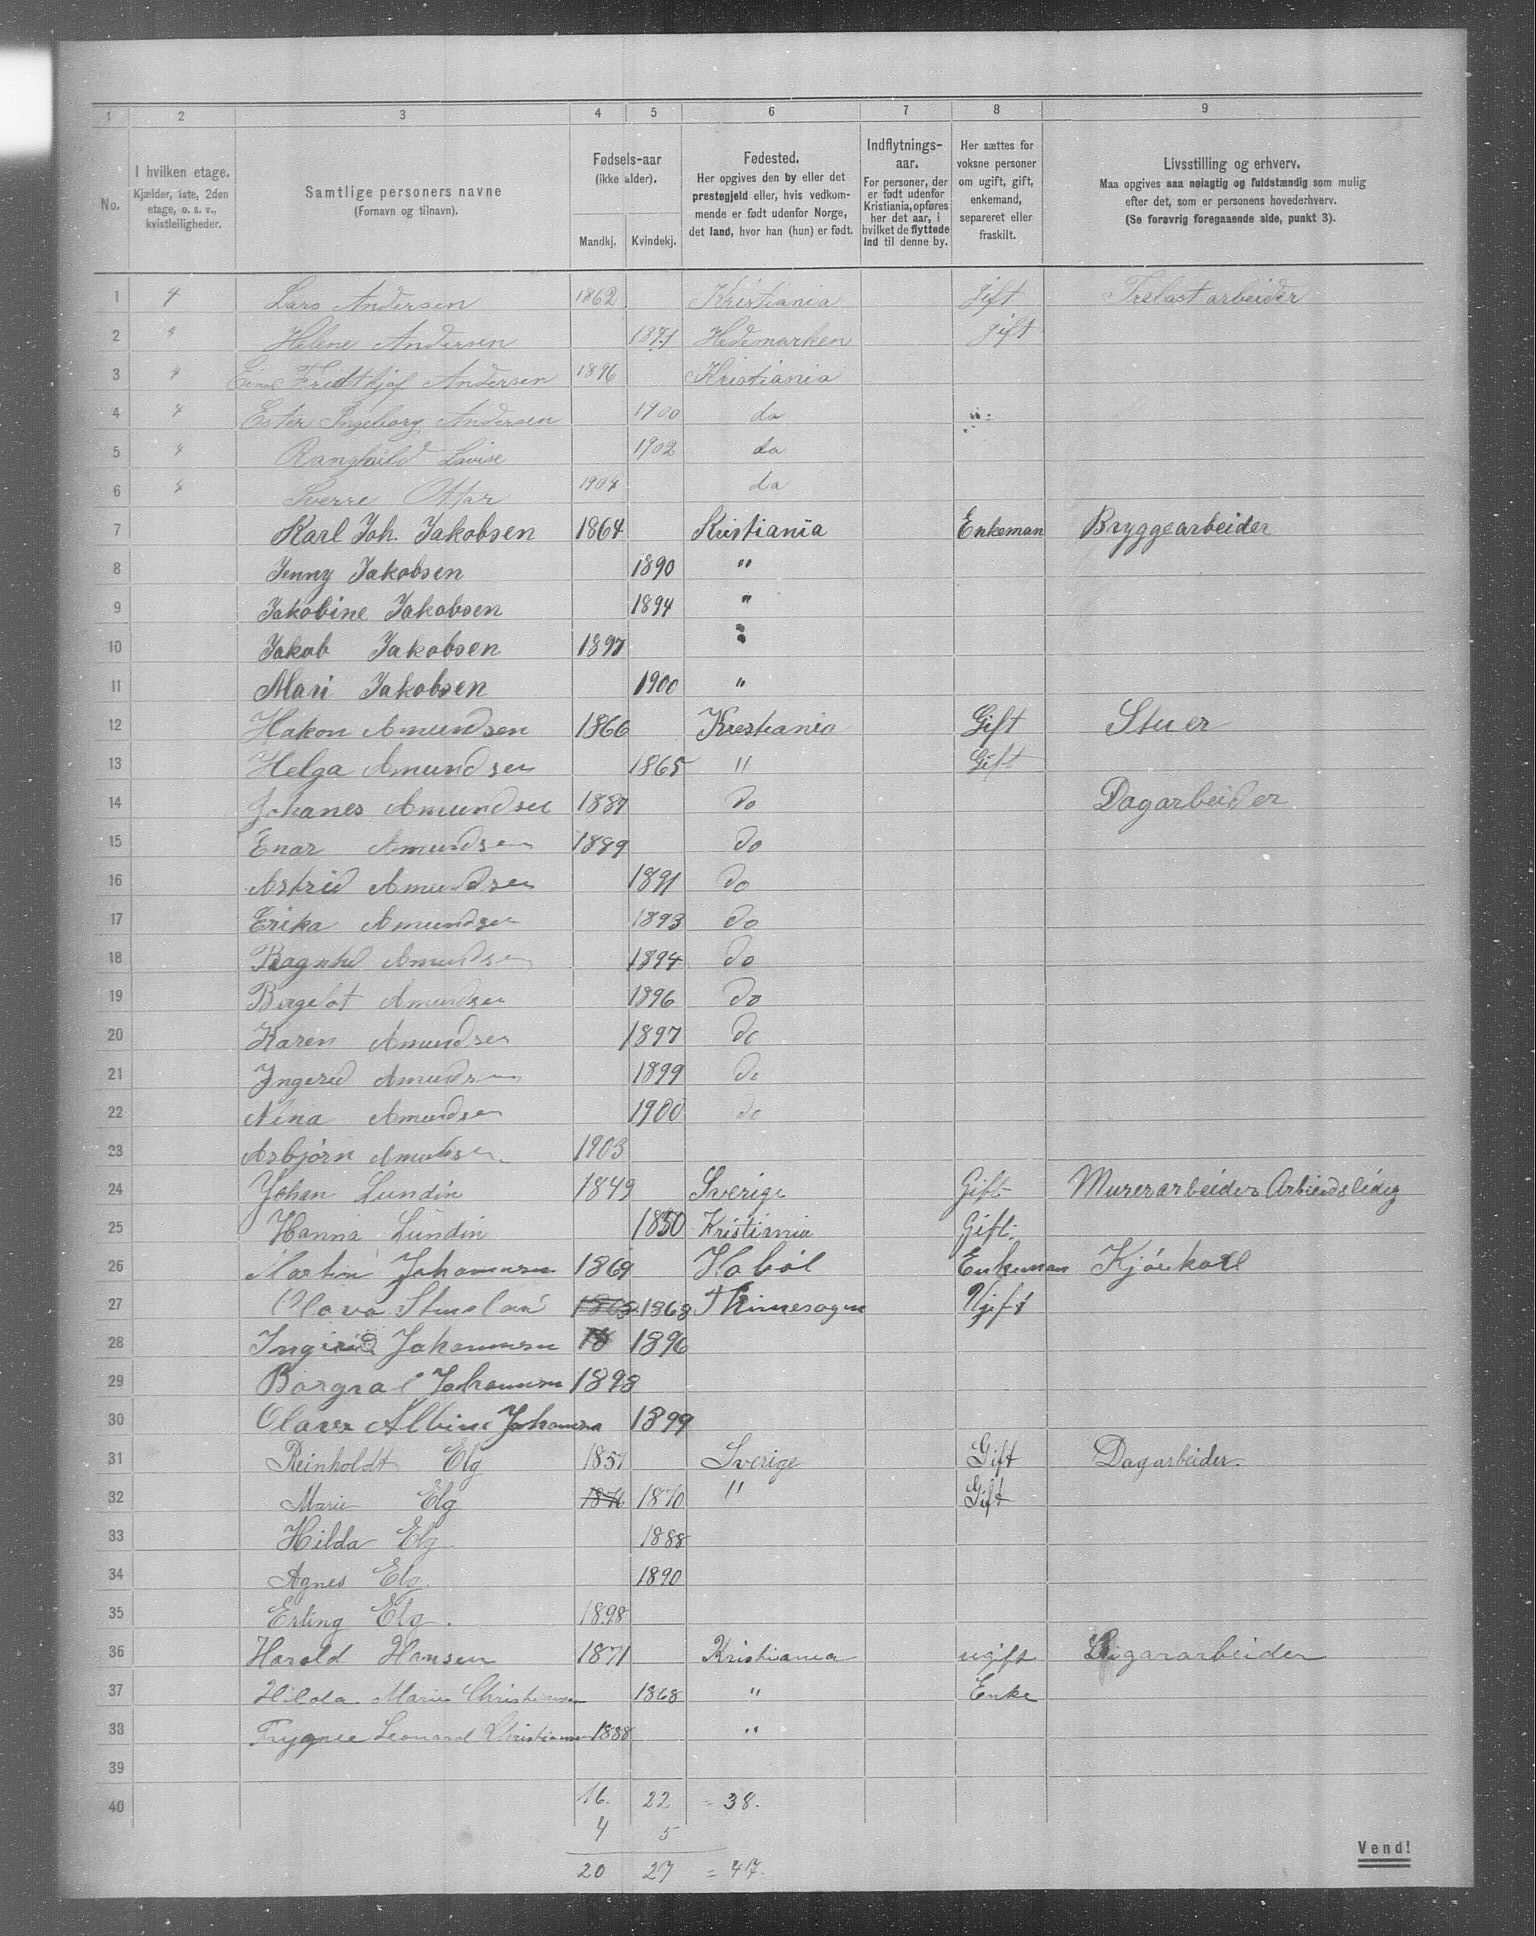 1 2 3 4 5 6 7 8 9
No. I hvilken etage. Kjælder, 1ste, 2den etage, o. s. v., kvistleiligheder. Samtlige personers navne (Fornavn og tilnavn). Fødsels-aar (ikke alder). Mandkj. Kvindekj. Fødested. Her opgives den by eller det prestegjeld eller, hvis vedkommende er født udenfor Norge, det land, hvor han (hun) er født. Indflytnings-aar. For personer, der er født udenfor Kristiania, opføres her det aar, i hvilket de flyttede ind til denne by. Her sættes for voksne personer om ugift, gift, enkemand, separeret eller fraskilt. Livsstilling og erhverv. Maa opgives saa nøiagtig og fuldstændig som mulig efter det, som er personens hovederhverv. (Se forøvrig foregaaende side, punkt 3).
1 4 Lars Andersen 1862 Kristiania gift Trelast arbeider
2 " Helene Andersen 1871 Hedemarken gift
3 " Einar Fridtkjof Andersen 1896 Kristiania
4 " Ester Ingeborg Andersen 1900 do
5 " Ranghild Lovise 1902 do
6 " Sverre 1904 da
7 Karl Joh. Jakobsen 1864 Kristiania Enkeman Bryggearbeider
8 Jenny Jakobsen 1890 "
9 Jakobine Jakobsen 1894 "
10 Jakob Jakobsen 1897 "
11 Mari Jakobsen 1900 "
12 Hakon Amundsen 1866 Krestiania Gift Stuer
13 Helga Amundsen 1865 " Gift
14 Johanes Amundsen 1887 do Dagarbeider
15 Enar Amundsen 1889 do
16 Astrid Amundsen 1891 do
17 Erika Amundsen 1893 do
18 Ragnhild Amundsen 1894 do
19 Bergelot Amundsen 1896 do
20 Karen Amundsen 1897 do
21 Ingered Amundsen 1899 do
22 Nina Amundsen 1900 do
23 Asbjørn Amundsen 1903
24 Johan Lundin 1849 Sverige Gift Murerarbeider Arbiedsledig
25 Hanna Lundin 1850 Kristiania Gift.
26 Martin Johannsen 1869 Hoból Enkeman Kjórekarl
27 Olava 1868 1868 Ugift
28 Ingerid Johannsen 18 1896
29 Johannsen 1898
30 Olava Albine Johannsen 1899
31 Reinholdt Elg 1857 Sverige Gift Dagarbeider.
32 Marie Elg 1870 " Gift
33 Hilda Elg 1888
34 Agnes Elg. 1890
35 Erling Elg. 1898
36 Harald Hansen 1871 Kristiania ugift Sigararbeider
37 Hilda Marie Christiansen 1868 " Enke
38 Trygve Leonard Christiansen 1888 "
39
40 16. 22 = 38.
4 5
20 27 = 47.
Vend!